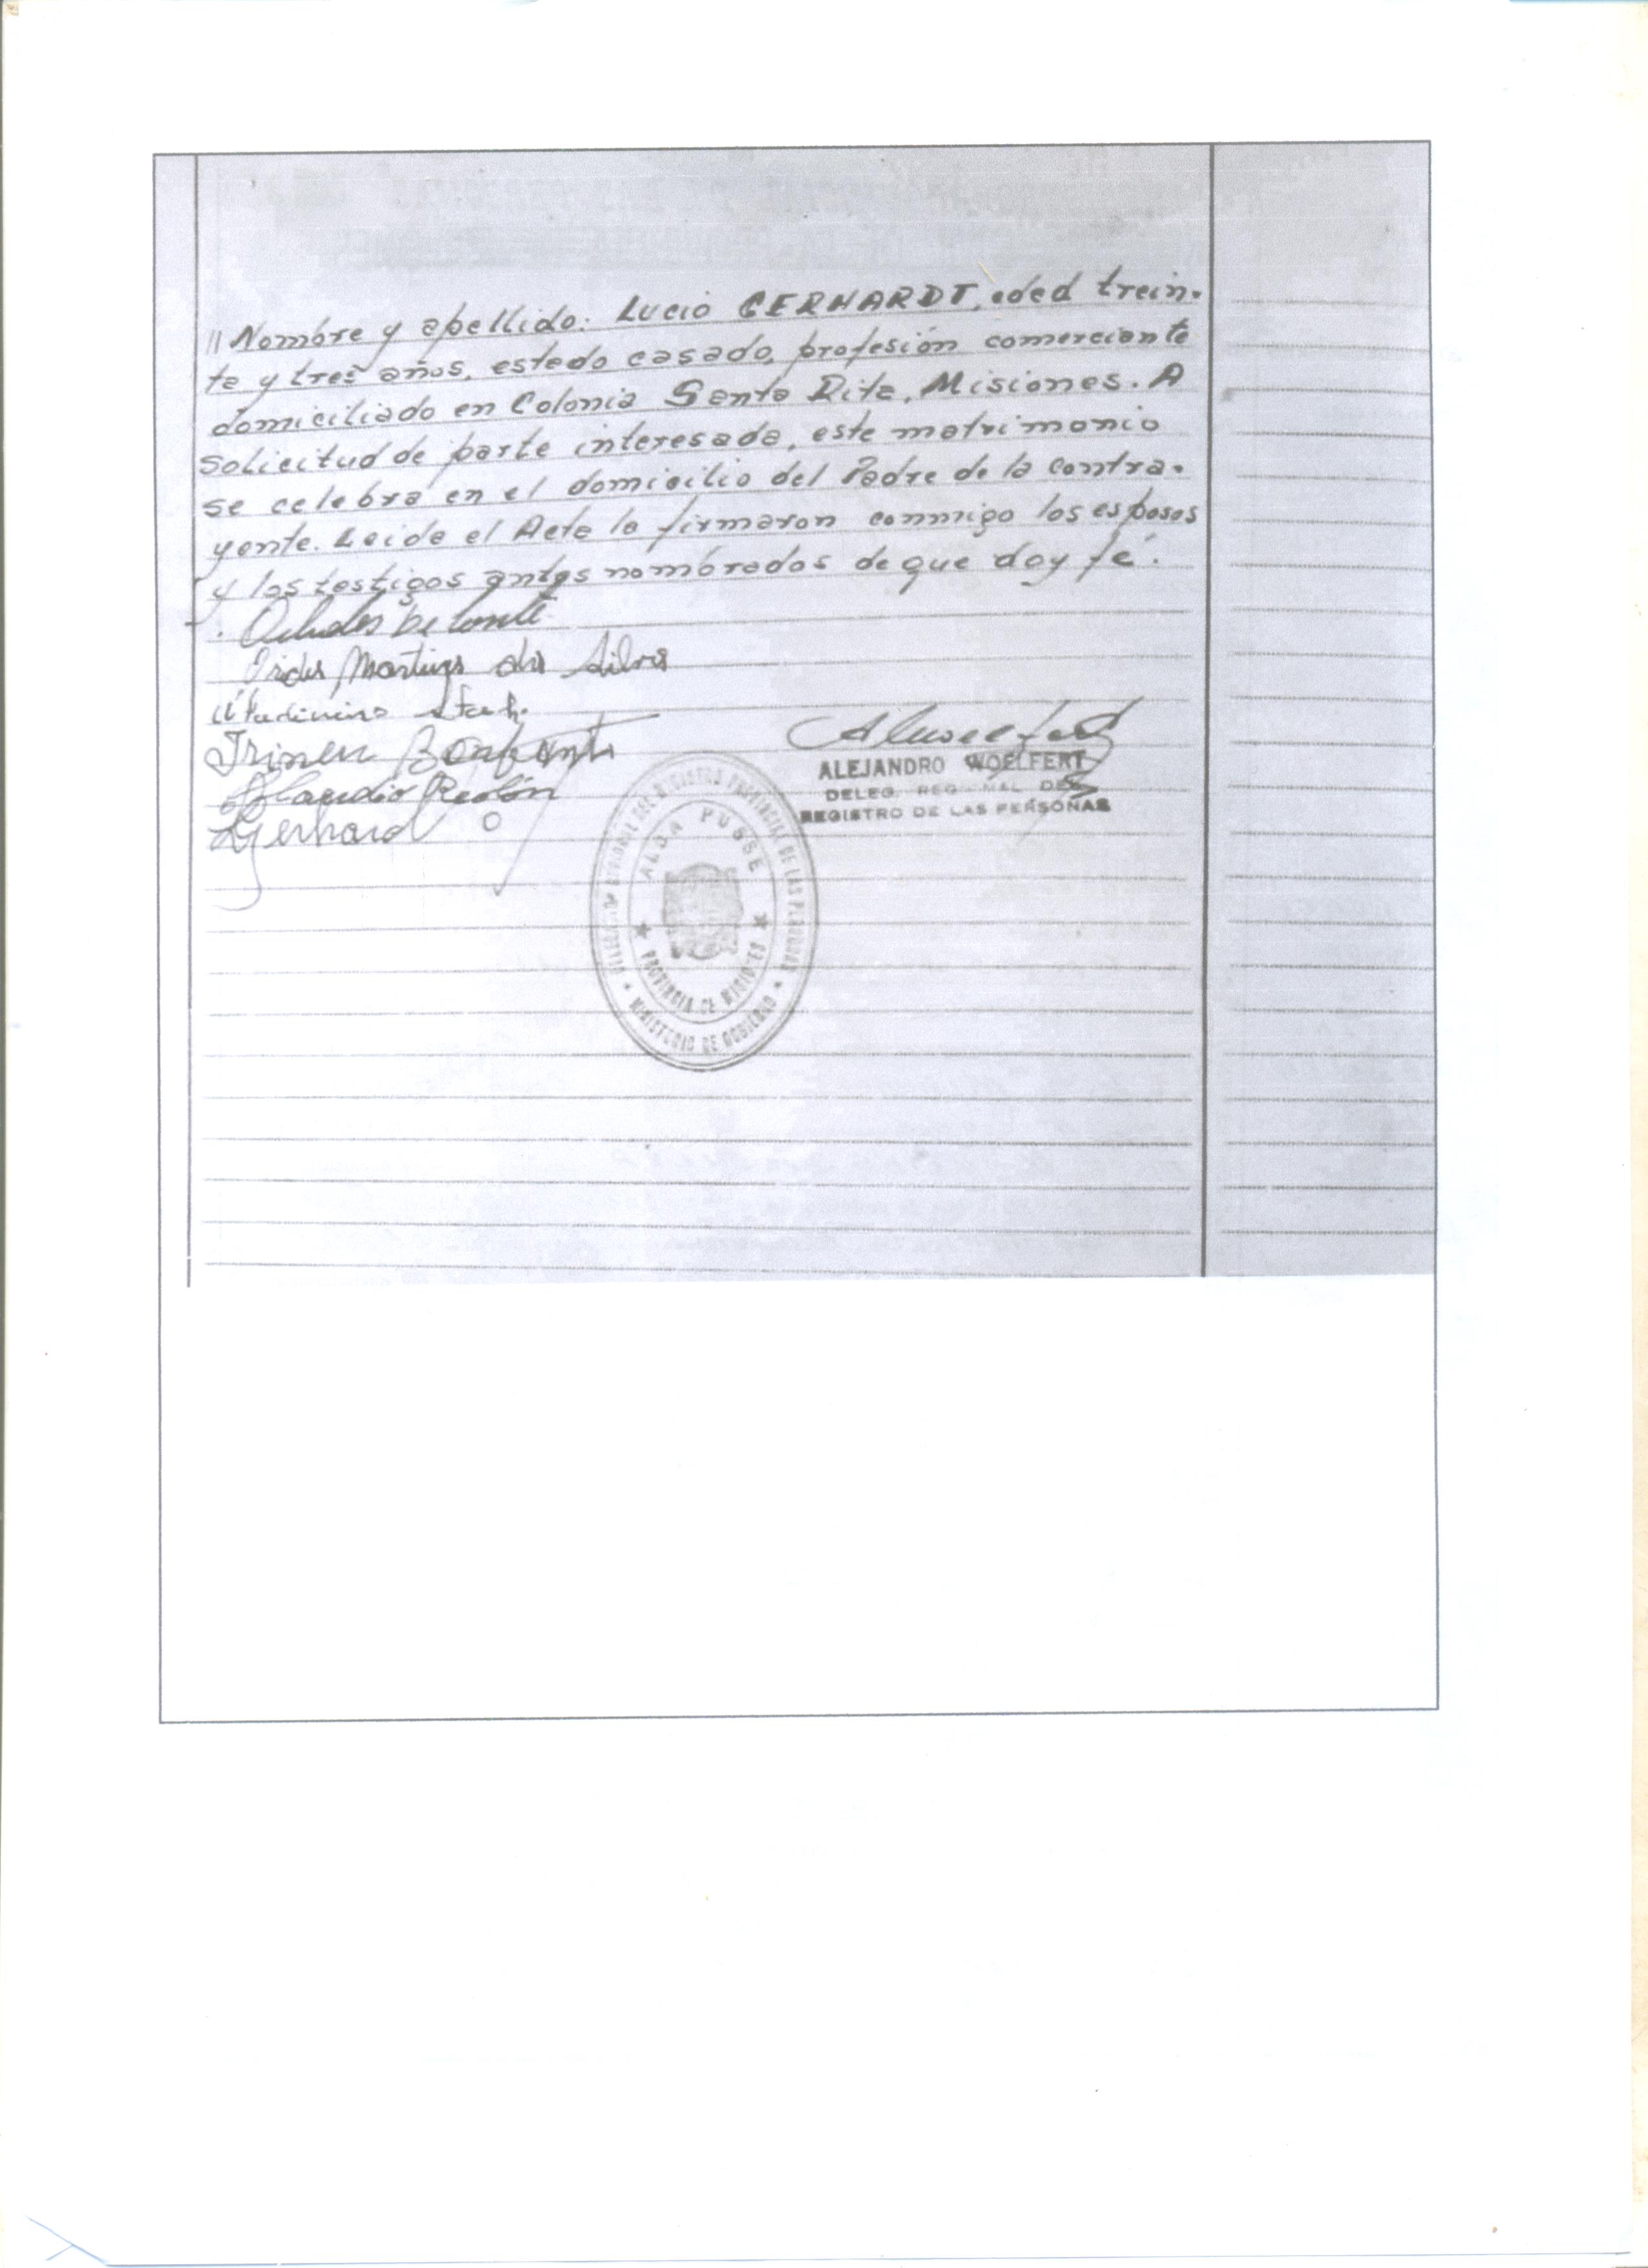 // Nombre y apellido: Lucio GERHARDT, edad trein-
ta y tres años, estado casado, profesión comerciante
domiciliado en Colonia Santa Rita, Misiones. A
solicitud de parte interesada, este matrimonio
se celebra en el domicilio del Padre de la contra-
yente. Leida el Acta la firmaron conmigo los esposos
y los testigos antes nombrados de que doy fé.
Martins da Silva
Claudio Rolón
Gerhard
ALEJANDRO WOELFERT
DELEG. REGIONAL DEL
REGISTRO DE LAS PERSONAS
DELEGACION REGIONAL DEL REGISTRO PROVINCIAL DE LAS PERSONAS
ALBA POSSE
PROVINCIA DE MISIONES
MINISTERIO DE GOBIERNO